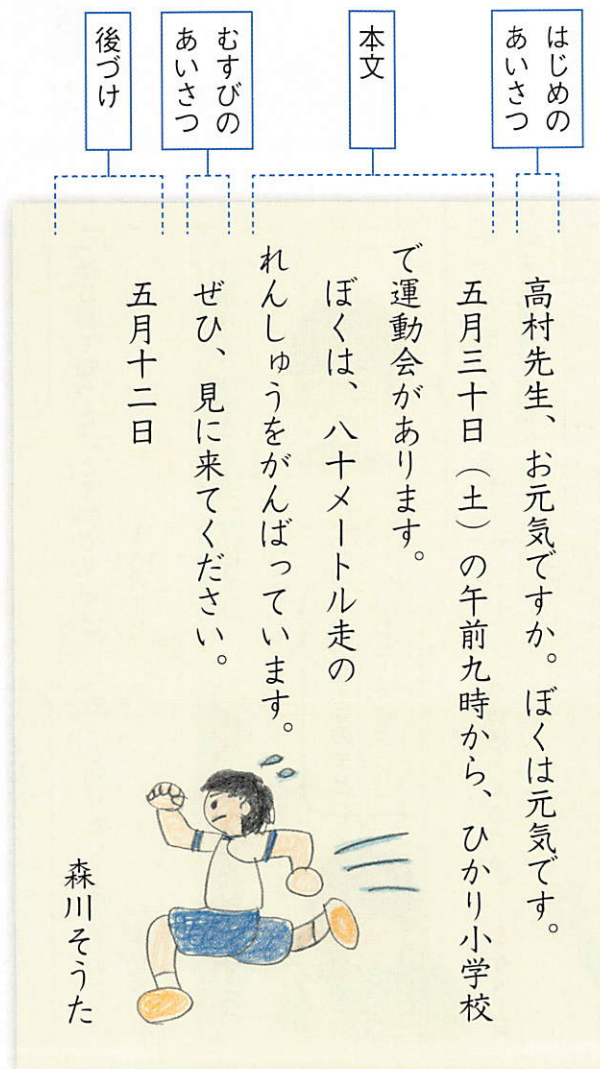 はじめの
あいさつ
本文
むすびの
あいさつ
後づけ
高村先生、お元気ですか。ぼくは元気です。
五月三十日（土）の午前九時から、ひかり小学校
で運動会があります。
ぼくは、八十メートル走の
れんしゅうをがんばっています。
ぜひ、見に来てください。
五月十二日
森川そうた